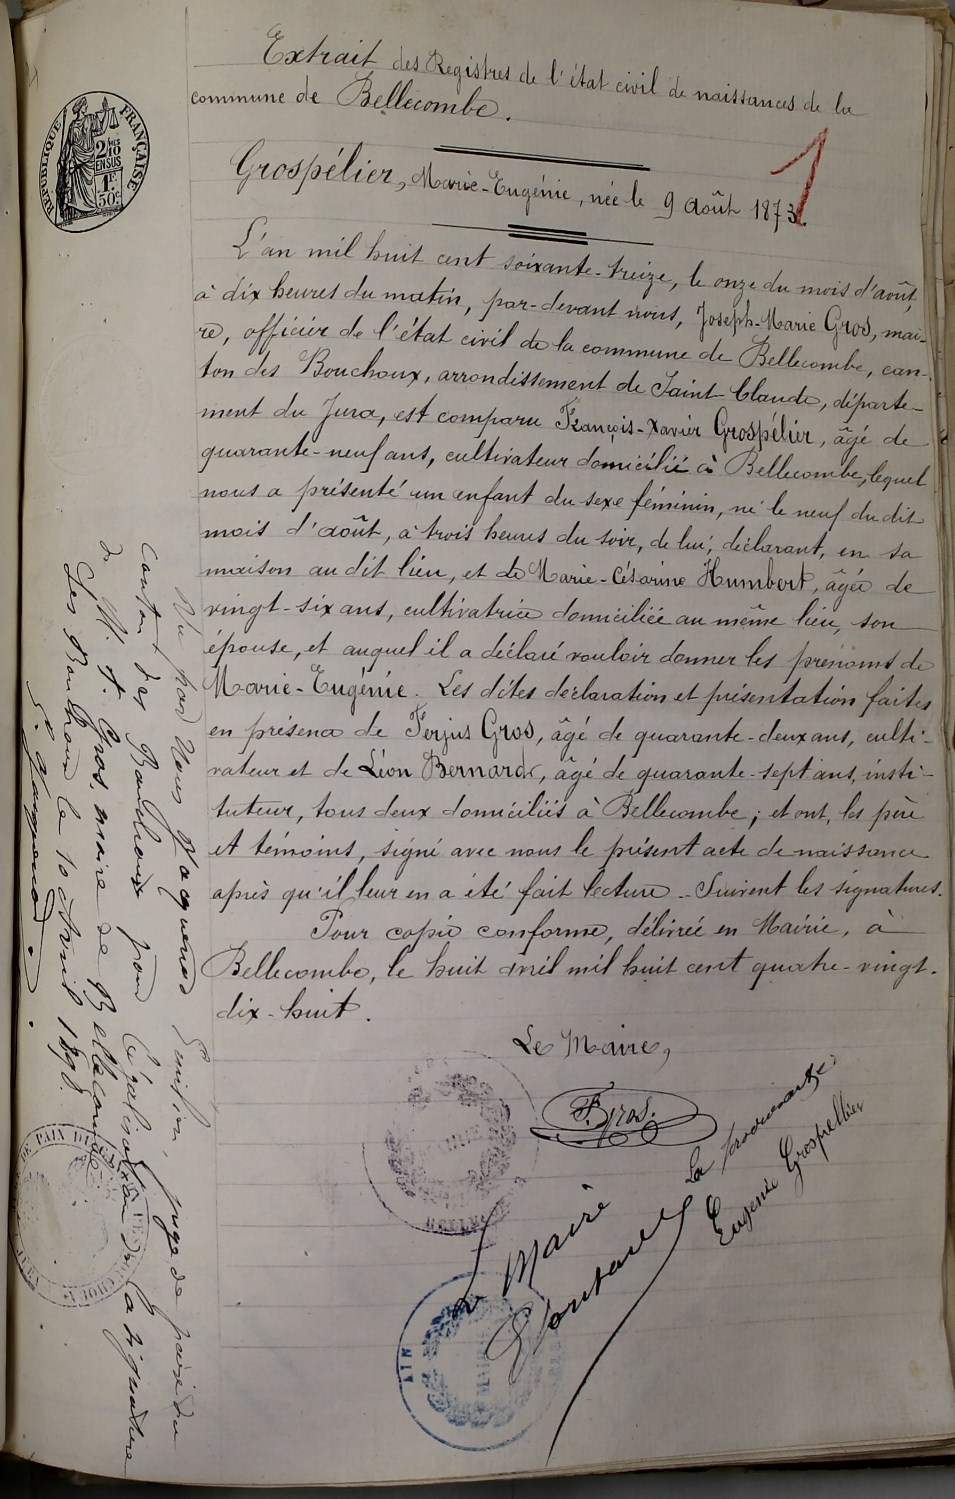 Extrait des Registres de l'état civil de naissances de la
commune de Bellecombe.
RÉPUBLIQUE FRANÇAISE
2/10
EN SUS
1F.
50c
1
Grospélier, Marie-Eugénie, née le 9 août 1873
L'an mil huit cent soixante-treize, le onze du mois d'août,
à dix heures du matin, par-devant nous, Joseph-Marie Gros, mai-
re, officier de l'état civil de la commune de Bellecombe, can-
ton des Bouchoux, arrondissement de Saint-Claude, départe-
ment du Jura, est comparu François-Xavier Grospélier, âgé de
quarante-neuf ans, cultivateur domicilié à Bellecombe, lequel
nous a présenté un enfant du sexe féminin, né le neuf du dit
mois d'août, à trois heures du soir, de lui, déclarant, en sa
maison au dit lieu, et de Marie-Césarine Humbert, âgée de
vingt-six ans, cultivatrice domiciliée au même lieu, son
épouse, et auquel il a déclaré vouloir donner les prénoms de
Marie-Eugénie. Les dites déclaration et présentation faites
en présence de Ferjus Gros, âgé de quarante-deux ans, culti-
vateur et de Léon Bernard, âgé de quarante-sept ans, insti-
tuteur, tous deux domiciliés à Bellecombe; et ont, les père
et témoins, signé avec nous le présent acte de naissance
après qu'il leur en a été fait lecture. Suivent les signatures.
Pour copie conforme, délivrée en Mairie, à
Bellecombe, le huit avril mil huit cent quatre-vingt-
dix-huit.
Le Maire,
F. Gros.
Le Maire
Eugénie Grospellier
AIN
Vu par Nous juge de paix du
canton des Bouchoux pour légalisation de la signature
de M. F. Gros, maire de Bellecombe
Les Bouchoux le 10 Avril 1898.